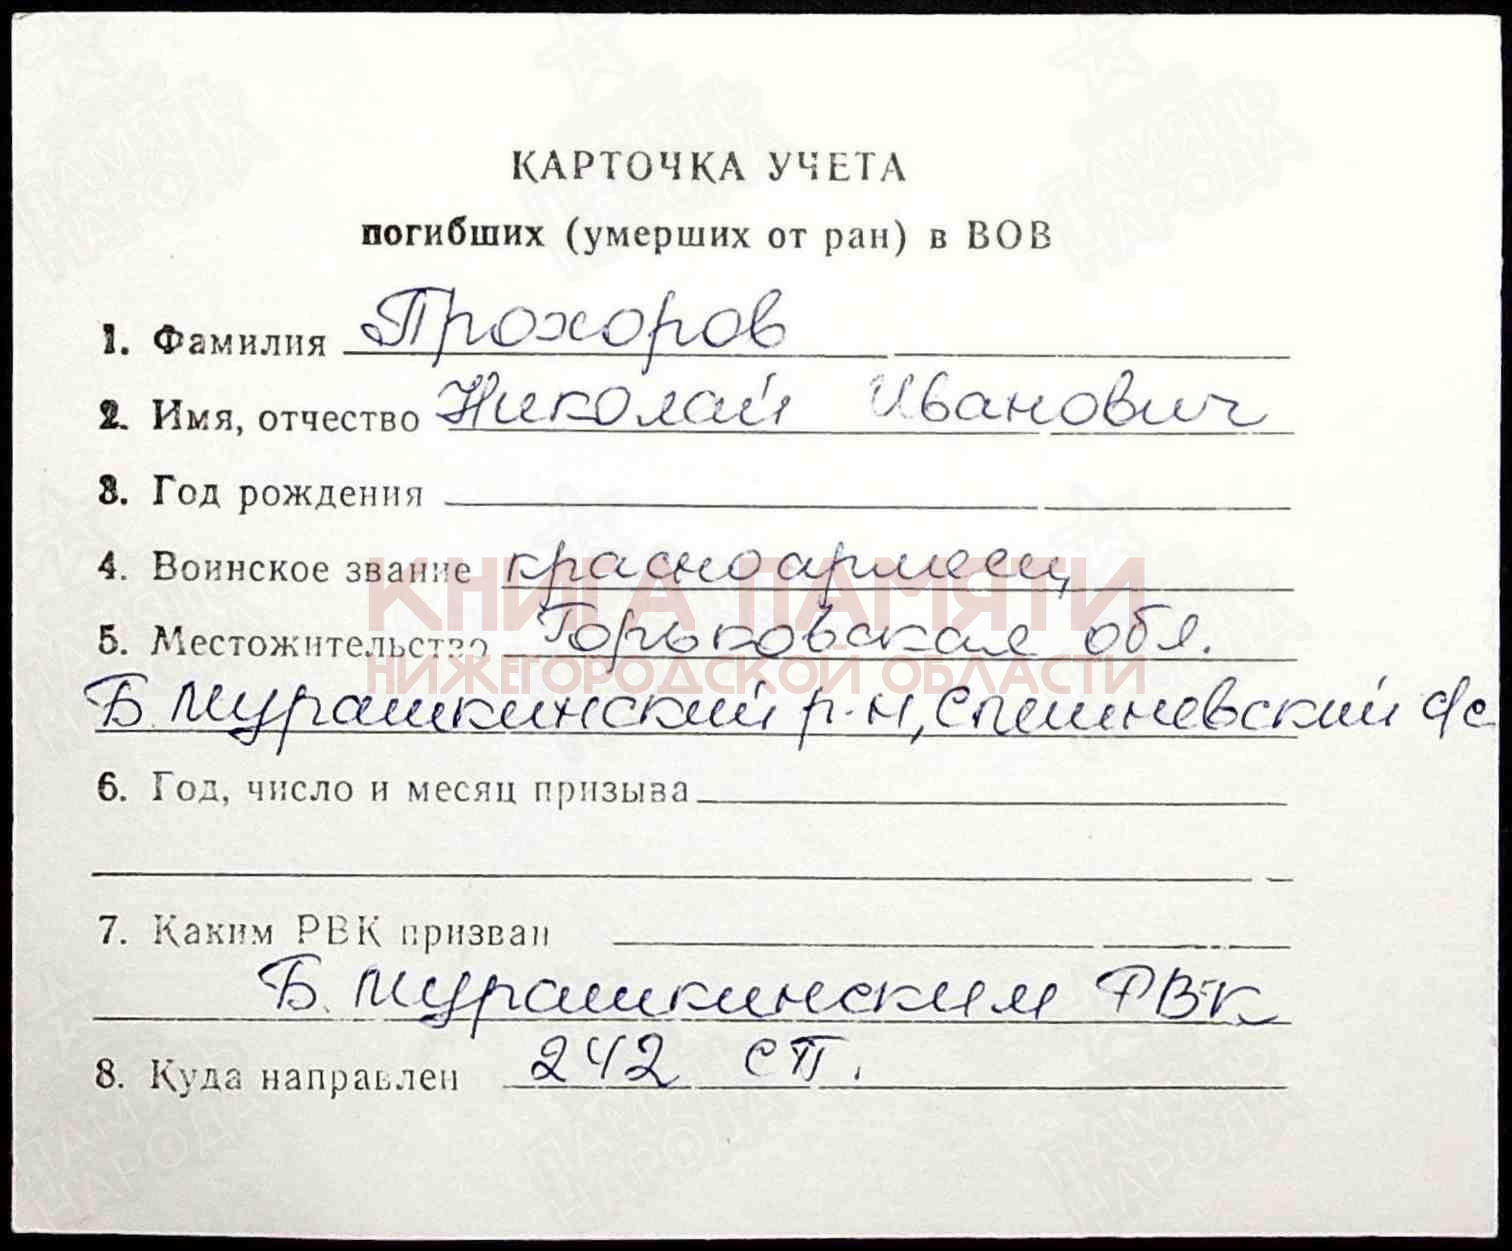 КАРТОЧКА УЧЕТА
погибших (умерших от ран) в ВОВ
1. Фамилия Прохоров
2. Имя, отчество Николай Иванович
3. Год рождения
4. Воинское звание красноармеец
КНИГА ПАМЯТИ
5. Местожительство Горьковская обл.
НИЖЕГОРОДСКОЙ ОБЛАСТИ
Б. Мурашкинский р-н, Спешневский с/с
6. Год, число и месяц призыва
7. Каким РВК призван
Б. Мурашкинским РВК
8. Куда направлен 242 сп.
ПАМЯТЬ НАРОДА